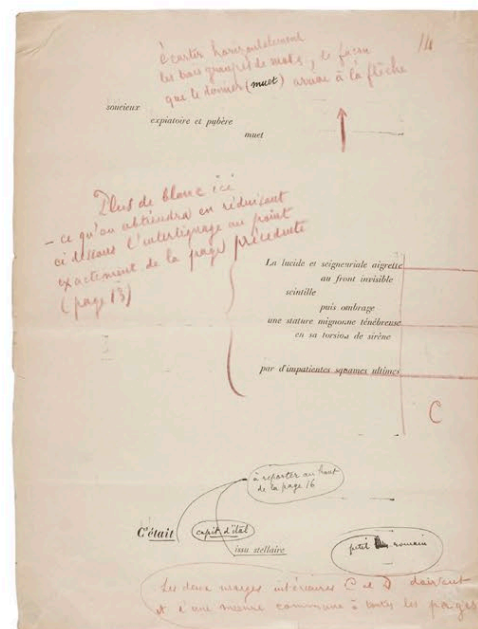 écarter horizontalement
les trois groupes de mots, de façon
que le dernier (muet) arrive à la flèche
soucieux
expiatoire et pubère
muet
Plus de blanc ici
– ce qu'on obtiendra en réduisant
ci dessous l'interlignage au point
exactement de la page précédente
(page 13)
La lucide et seigneuriale aigrette
au front invisible
scintille
puis ombrage
une stature mignonne ténébreuse
en sa torsion de sirène
par d'impatientes squames ultimes
C
à reporter au haut
de la page 16
C'était
issu stellaire
petit romain
Les deux marges intérieures C et D doivent
et d'une mesure commune à toutes les pages